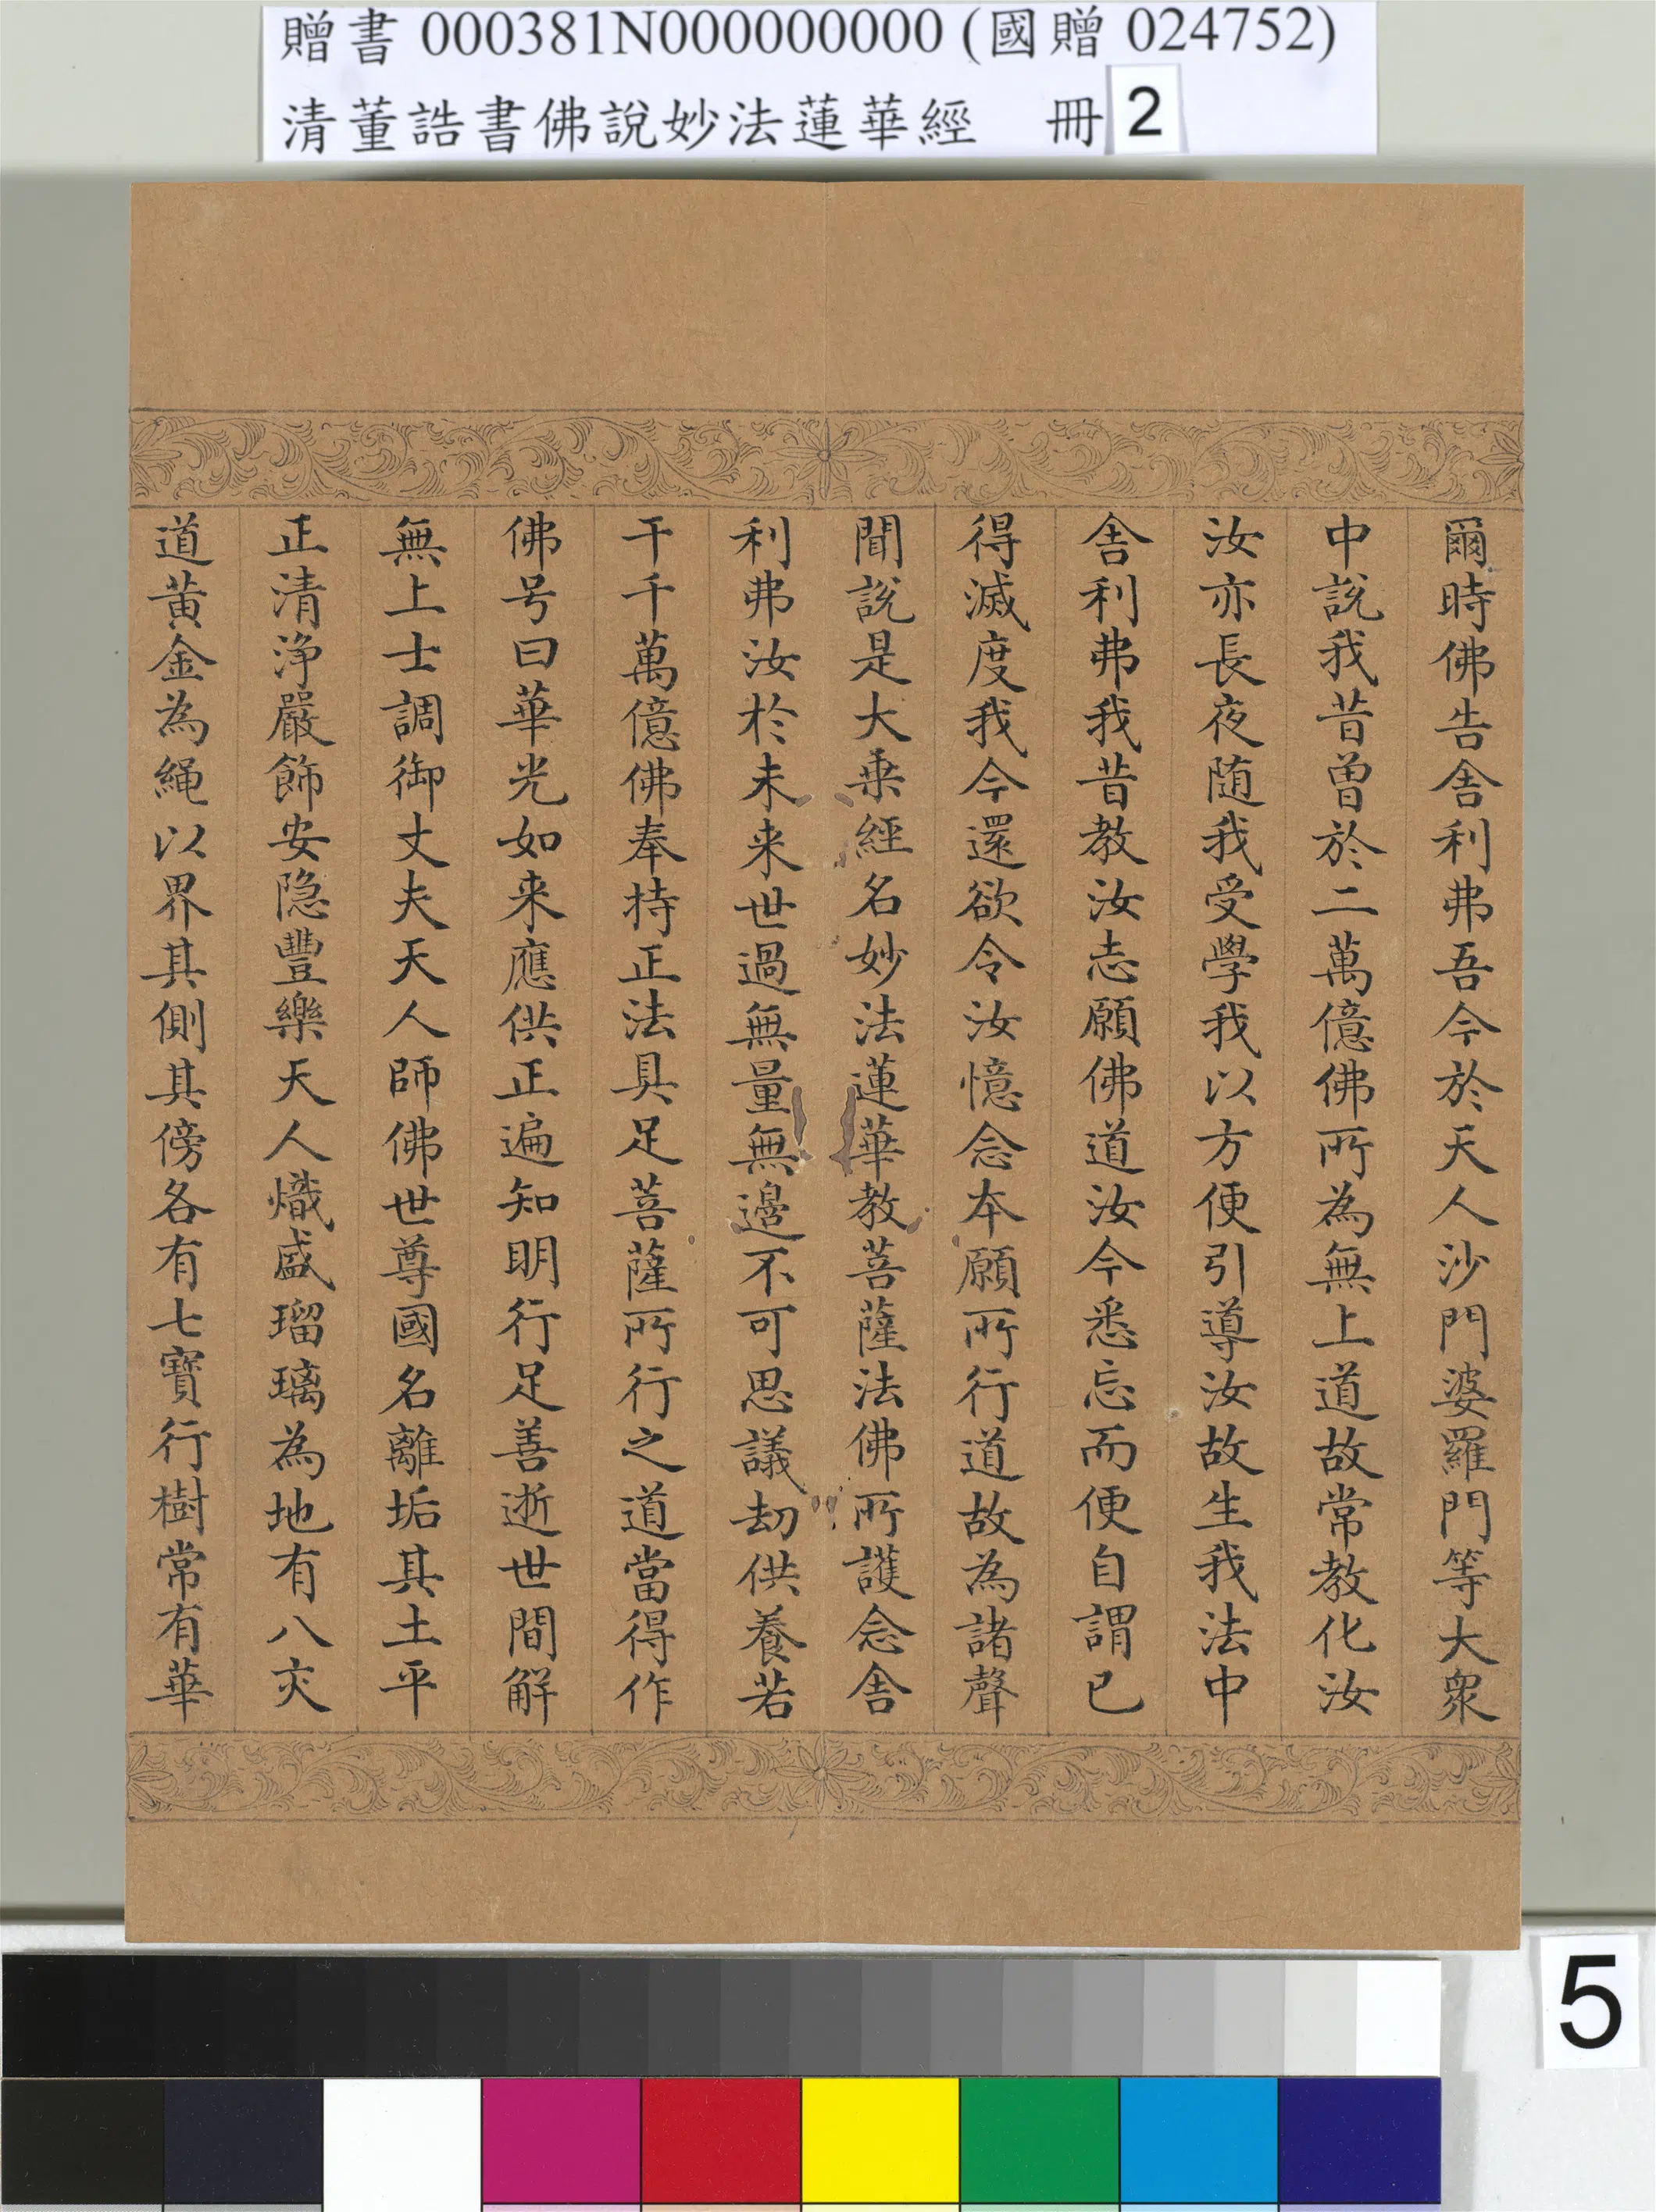 贈書 000381N000000000 (國贈 024752)
清董誥書佛說妙法蓮華經 冊 2
爾時佛告舎利弗吾今於天人沙門婆羅門等大衆
中說我昔曾於二萬億佛所為無上道故常教化汝
汝亦長夜随我受學我以方便引導汝故生我法中
舎利弗我昔教汝志願佛道汝今悉忘而便自謂已
得滅度我今還欲令汝憶念本願所行道故為諸聲
聞說是大乗經名妙法蓮華教菩薩法佛所護念舎
利弗汝於未来世過無量無邊不可思議劫供養若
干千萬億佛奉持正法具足菩薩所行之道當得作
佛号曰華光如来應供正遍知明行足善逝世間解
無上士調御丈夫天人師佛世尊國名離垢其土平
正清淨嚴飾安隐豐樂天人熾盛瑠璃為地有八交
道黃金為繩以界其側其傍各有七寶行樹常有華
5